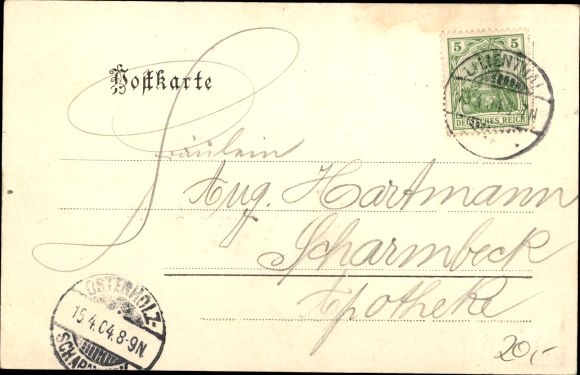 Postkarte
5 5
DEUTSCHES REICH
LILIENTHAL
Fräulein
Aug. Hartmann
Scharmbeck
Apotheke
OSTERHOLZ-
15.4.04.8-9N
SCHARM
20,-